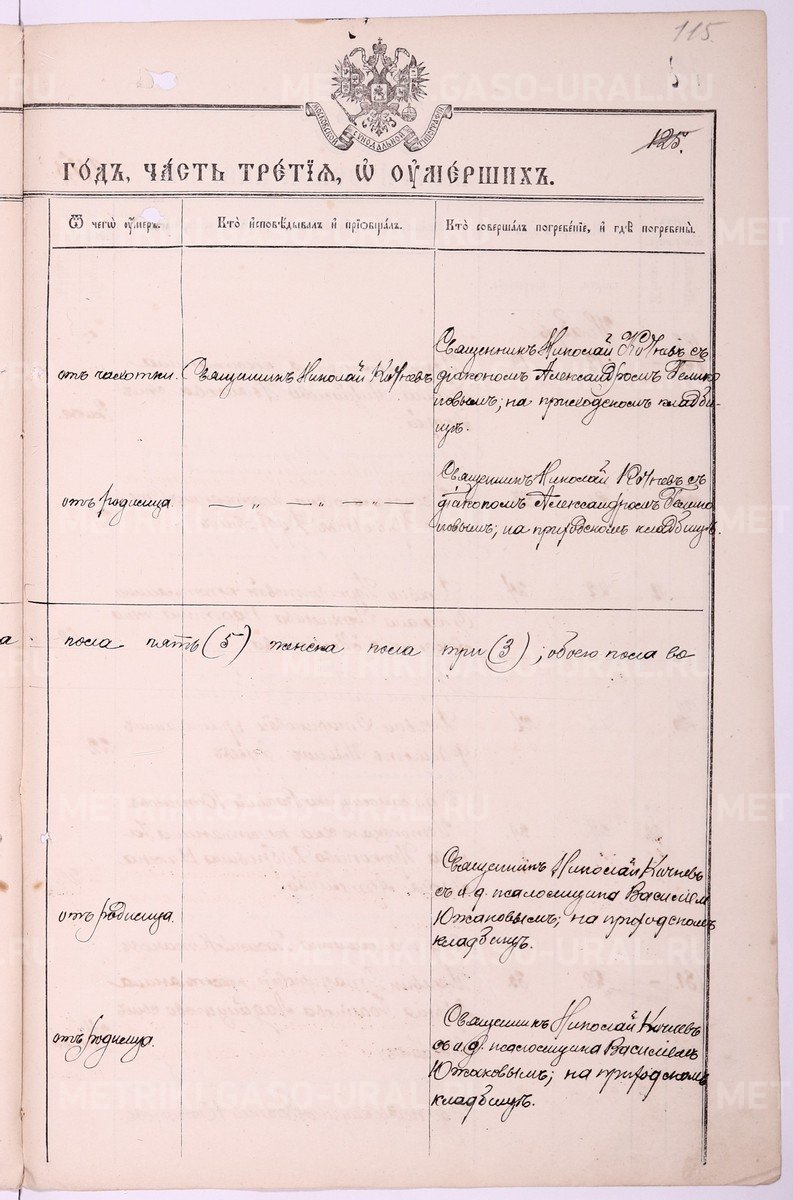 115.
МОСКОВСКОЙ СѴНОДАЛЬНОЙ ТИПОГРАФІИ
125.
ГОДЪ, ЧАСТЬ ТРЕТІЯ, Ѿ ОУМЕРШИХЪ.
Ѿ чегѡ оумеръ.
Кто исповѣдывалъ и прїобщалъ.
Кто совершалъ погребенїе, и гдѣ погребены.
отъ чахотки.
Священникъ Николай Кочневъ
Священникъ Николай Кочневъ съ
діакономъ Александромъ
повымъ; на приходскомъ кладби-
щѣ.
отъ родимца.
— „ — „ — „ —
Священникъ Николай Кочневъ съ
діакономъ Александромъ
повымъ; на приходскомъ кладбищѣ.
пола пять (5) женска пола три (3); обоего пола во
отъ родимца.
Священникъ Николай Кочневъ
съ и. д. псаломщика Василіем
Южаковымъ; на приходскомъ
кладбищѣ.
отъ родимца.
Священникъ Николай Кочневъ
съ и. д. псаломщика Василіемъ
Южаковымъ; на приходскомъ
кладбищѣ.
METRIKI.GASO-URAL.RU